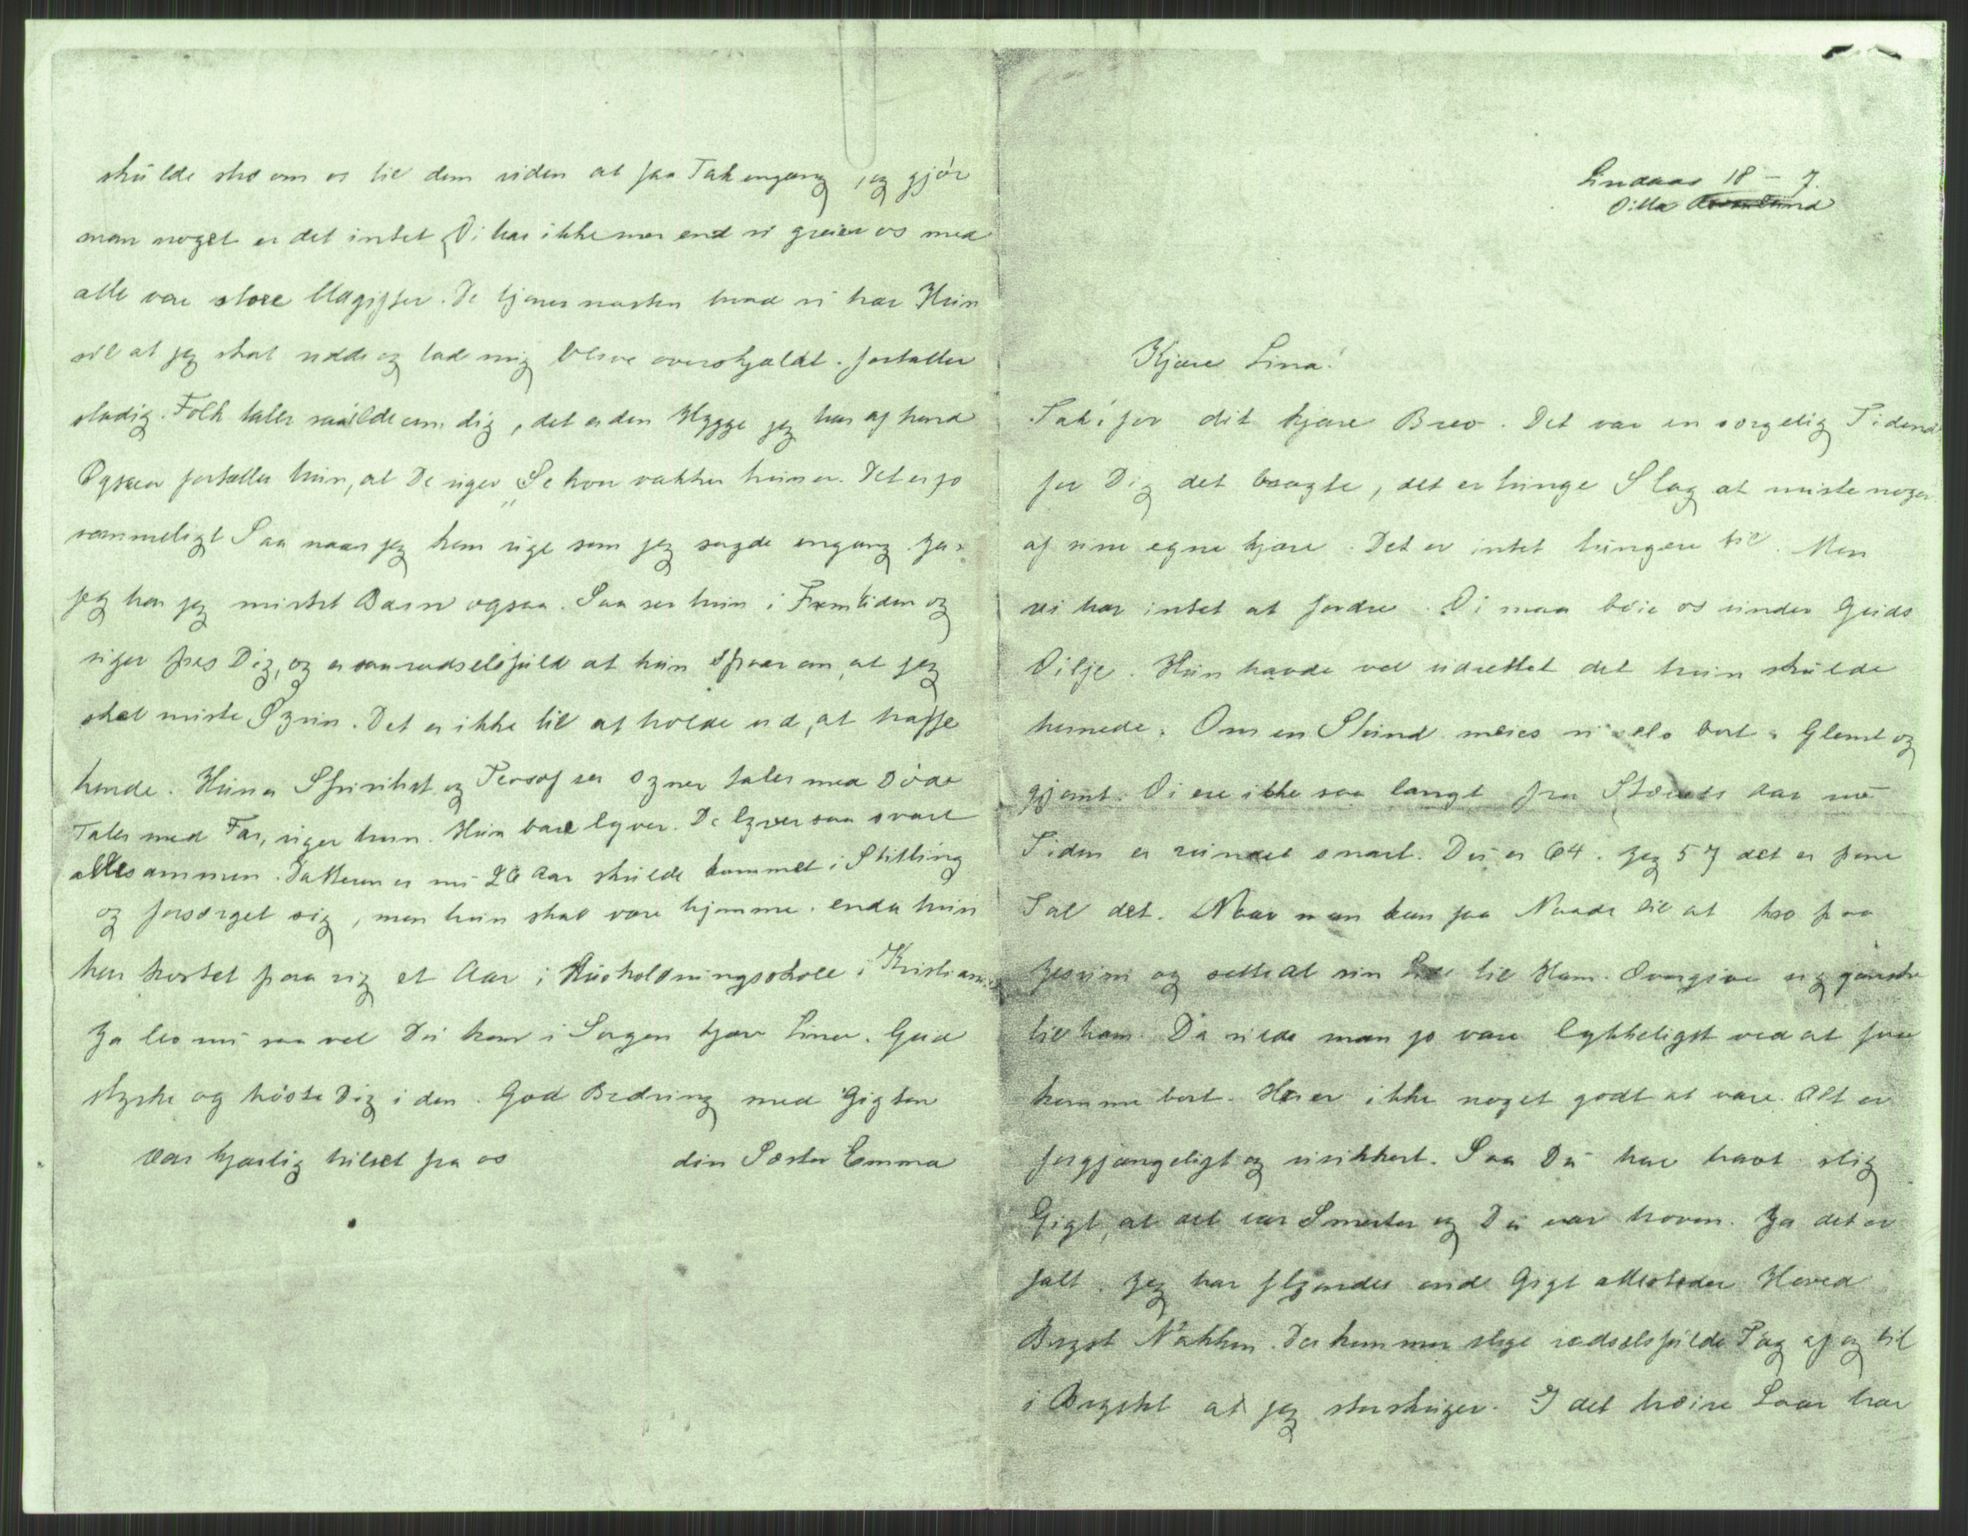 Lindaas 18 - 7.
Villa
Kjære Lina!
Tak for dit kjære Brev. Det var en sorgelig Tidend
for Dig det bragte, det er tunge Slag at miste nogen
af sine egne kjære. Det er intet tungere til. Men
vi har intet at fordre. Vi maa bøie os under Guds
Vilje. Hun havde vel udrettet det hun skulde
hernede. Om en Stund meies vi alle bort. Glemt og
gjemt. Vi ere ikke saa langt fra Støvets Aar nu
Tiden er rundet snart. Du er 64. Jeg 57 det er pene
Tal det. Naar man kan faa Naade til at tro paa
Jesum og sætte al sin Lid til Ham. Overgive sig ganske
til ham. Da vilde man jo være lykkeligst ved at faa
komme bort. Her er ikke noget godt at være. Alt er
forgjængeligt og usikkert. Saa Du har havt slig
Gigt, at det var Smerter og Du var hoven. Ja det er
fælt. Jeg har flyendes ende Gigt allesteder Hoved
Bryst Nakken. Der kommer slige rædselsfulde Tag af og til
i Brystet at jeg storskriger. I det høire Laar har
skulde sko om os til dem uden at faa Tak engang, og gjør
man noget er det intet. Vi har ikke mer end vi greier os med
alle vore store Udgifter. De tjener næsten hvad vi har Hun
vil at jeg skal sidde og lad mig blive overskjældt. fortæller
stadig. Folk taler saa ilde om dig, det er den Hygge jeg har af hend
Ogsaa fortæller hun, at De siger "Se hvor vakker hun er. Det er jo
vemmeligt Saa naar jeg kom sige som jeg sagde engang. Ja,
jeg har jeg mistet Barn ogsaa. Saa ser hun i Fremtiden og
siger pas Dig, og er saa rædselsfuld at hun spaar om, at jeg
skal miste Synn. Det er ikke til at holde ud, at træffe
hende. Hun er Spiritist og Teosof ser Syner taler med Døde
Taler med Far, siger hun. Hun bare lyver. De lyver saa svart
allesammen. Datteren er nu 26 Aar skulde kommet i Stilling
og forsørget sig, men hun skal være hjemme. enda hun
har kostet paa sig et Aar i Husholdningsskole i Kristiania
Ja lev nu saa vel Du kan i Sorgen kjære Lina. Gud
styrke og trøste Dig i den. God Bedring med Gigten
Vær kjærlig hilset fra os din Søster Emma